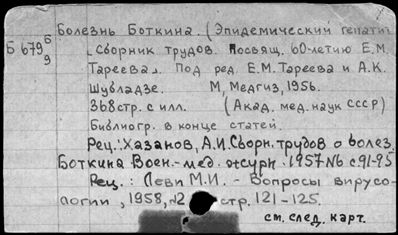 Болезнь Боткина. (Эпидемический гепатит)
Б 679 б/9
Сборник трудов. Посвящ. 60-летию Е.М.
Тареева". Под ред. Е.М. Тареева и А.К.
Шубладзе. М, Медгиз, 1956.
368 стр. с илл. (Акад. мед. наук СССР)
Библиогр. в конце статей.
Рец.: Хазанов, А.И. Сборн. трудов о болез.
Боткина Воен.-мед. журн. 1957 №6 с.91-95
Рец.: Леви М.И. - Вопросы вирусо-
логии, 1958, №2 стр. 121-125.
см. след. карт.